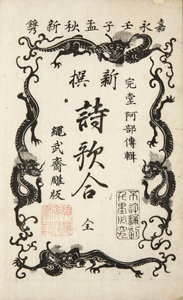 嘉永壬子孟秋新鐫
完堂阿部傳輯
新撰
詩歌合 全
繩武齋雕版